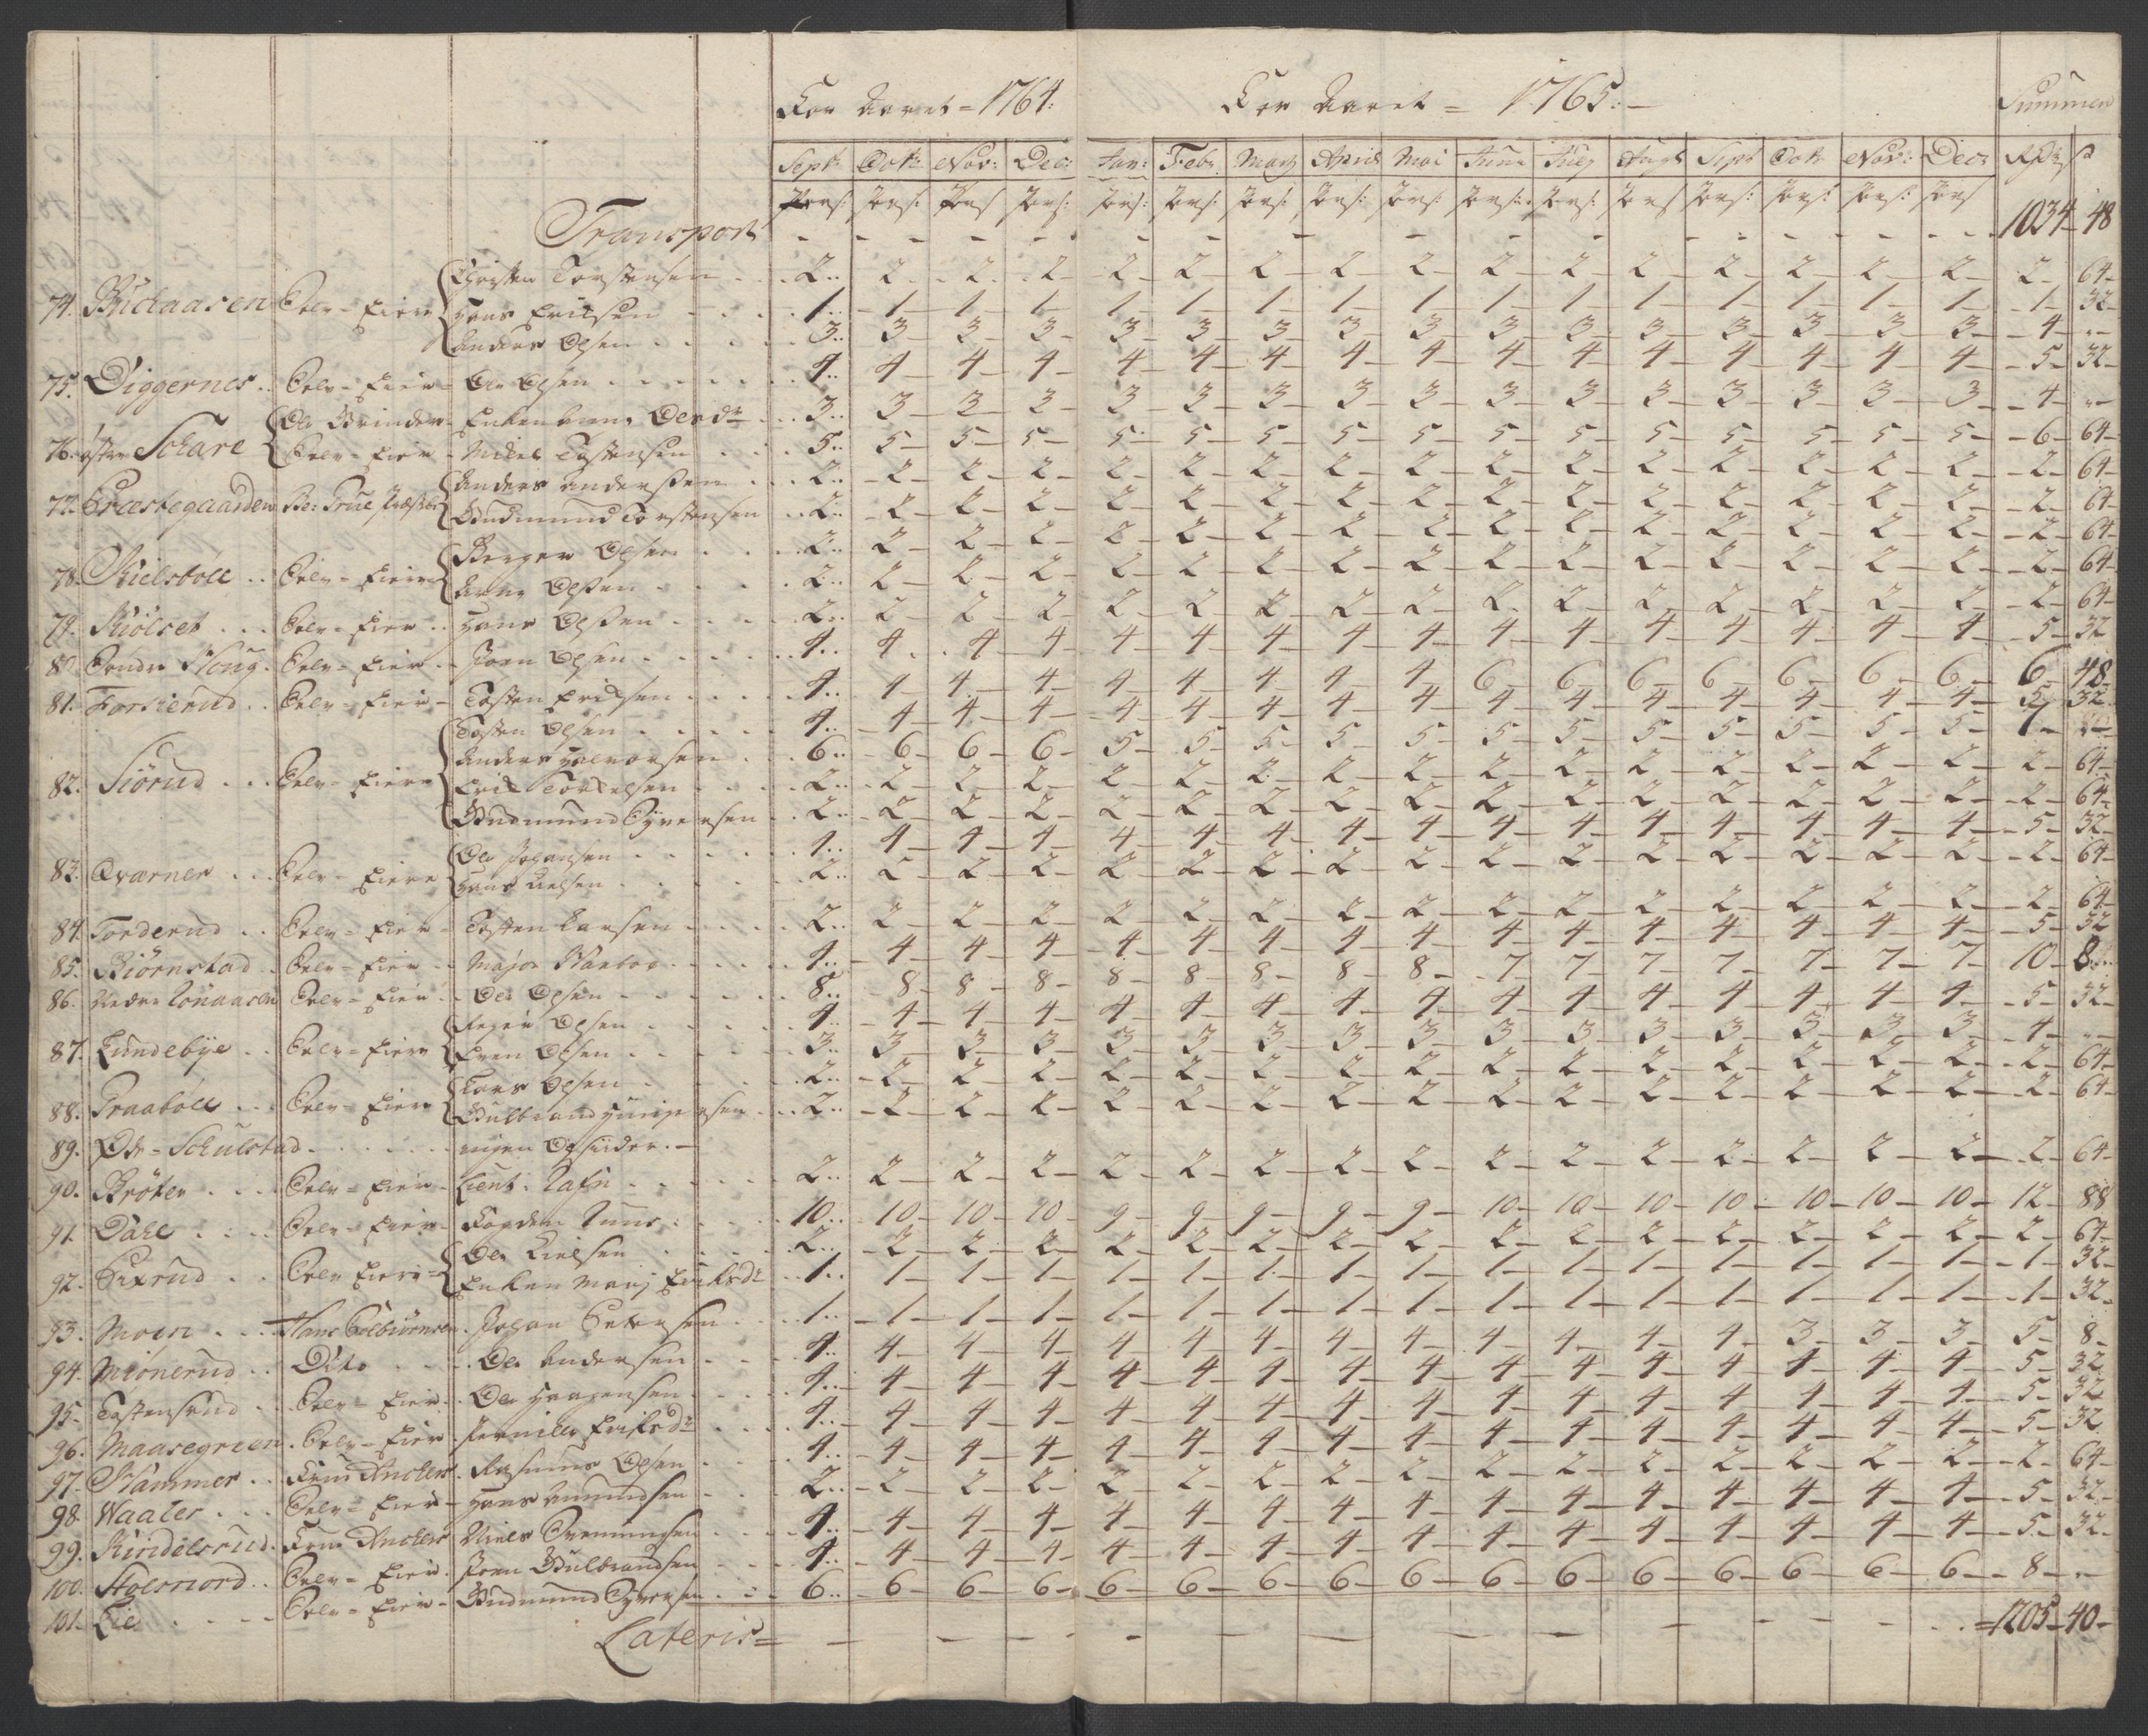 For Aaret = 1764: For Aaret = 1765:— Summen
Sept: Octr: Nov: Dec: Jan: Febr. Martz April Mai Junii Julij Augt Sept Octr Nov: Decr Rdr ß
Pers: Pers: Pers Pers: Pers: Pers: Pers: Pers: Pers: Pers: Pers: Pers Pers: Pers: Pers: Pers
Transport - - - - - - - - - - - - - - - - 1034 - 48
Christen Torstensen 2 2 2 2 2 2 2 2 2 2 2 2 2 2 2 2 2 64
74. Budaasen Selv-Eiere Hans Erichsen 1 1 1 1 1 1 1 1 1 1 1 1 1 1 1 1 1 32
Anders Olsen 3 3 3 3 3 3 3 3 3 3 3 3 3 3 3 3 4 -
75. Diggernes Selv-Eier Ole Olsen 4 4 4 4 4 4 4 4 4 4 4 4 4 4 4 4 5 32
Ole Grinder Enken Olesdr 3 3 3 3 3 3 3 3 3 3 3 3 3 3 3 3 4 -
76. øster Schare Selv-Eier Mikel Tostensen 5 5 5 5 5 5 5 5 5 5 5 5 5 5 5 5 6 64
Anders Andersen 2 2 2 2 2 2 2 2 2 2 2 2 2 2 2 2 2 64
77. Præstegaarden Gudmund Torstensen 2 2 2 2 2 2 2 2 2 2 2 2 2 2 2 2 2 64
Berger Olsen 2 2 2 2 2 2 2 2 2 2 2 2 2 2 2 2 2 64
78. Kielsbøll Selv-Eiere Arne Olsen 2 2 2 2 2 2 2 2 2 2 2 2 2 2 2 2 2 64
79. Kiølset Selv-Eier Hans Olsen 2 2 2 2 2 2 2 2 2 2 2 2 2 2 2 2 2 64
80. Søndre Houg Selv-Eier Joen Olsen 4 4 4 4 4 4 4 4 4 4 4 4 4 4 4 4 5 32
81. Forkierud Selv-Eier Tosten Erichsen 4 4 4 4 4 4 4 4 4 6 6 6 6 6 6 6 6 48
Tosten Olsen 4 4 4 4 4 4 4 4 4 4 4 4 4 4 4 4 5 32
Anders Halvorsen 6 6 6 6 5 5 5 5 5 5 5 5 5 5 5 5 7
82. Siørud Selv-Eiere Erik Torkelsen 2 2 2 2 2 2 2 2 2 2 2 2 2 2 2 2 2 64
Gudmund Syversen 2 2 2 2 2 2 2 2 2 2 2 2 2 2 2 2 2 64
Ole Johansen 4 4 4 4 4 4 4 4 4 4 4 4 4 4 4 4 5 32
83. Qværner Selv-Eiere Hans Nielsen 2 2 2 2 2 2 2 2 2 2 2 2 2 2 2 2 2 64
84. Torderud Selv-Eier Tosten Larsen 2 2 2 2 2 2 2 2 2 2 2 2 2 2 2 2 2 64
85. Biørnstad Selv-Eier Major 4 4 4 4 4 4 4 4 4 4 4 4 4 4 4 4 5 32
86. Nedre Lønaasen Selv-Eier Ole Olsen 8 8 8 8 8 8 8 8 8 7 7 7 7 7 7 7 10 8
Olsen 4 4 4 4 4 4 4 4 4 4 4 4 4 4 4 4 5 32
87. Lundebye Selv-Eiere Even Olsen 3 3 3 3 3 3 3 3 3 3 3 3 3 3 3 3 4 -
Lars Olsen 2 2 2 2 2 2 2 2 2 2 2 2 2 2 2 2 2 64
88. Praabøll Selv-Eiere Gulbrand 2 2 2 2 2 2 2 2 2 2 2 2 2 2 2 2 2 64
89. Øde-Schulstad ingen Opsidder
90. Brøter Selv-Eier Lieut. Rafn 2 2 2 2 2 2 2 2 2 2 2 2 2 2 2 2 2 64
91. Dahl Selv-Eier Fogden 10 10 10 10 9 9 9 9 9 10 10 10 10 10 10 10 12 88
Ole Kielsen 2 2 2 2 2 2 2 2 2 2 2 2 2 2 2 2 2 64
92. Huxrud Selv Eiere Enken Mari Eriksdr 1 1 1 1 1 1 1 1 1 1 1 1 1 1 1 1 1 32
93. Moen Hans Colbiørnsen Johan Petersen 1 1 1 1 1 1 1 1 1 1 1 1 1 1 1 1 1 32
94. Miønerud Dito Ole Andersen 4 4 4 4 4 4 4 4 4 4 4 4 4 3 3 3 5 8
95. Tostensrud Selv-Eier Ole Haagensen 4 4 4 4 4 4 4 4 4 4 4 4 4 4 4 4 5 32
96. Maasegreen Selv-Eier Pernille Eriksdr 4 4 4 4 4 4 4 4 4 4 4 4 4 4 4 4 5 32
97. Hammer Frue Anckers Rasmus Olsen 4 4 4 4 4 4 4 4 4 4 4 4 4 4 4 4 5 32
98. Waaler Selv-Eier Hans Amundsen 2 2 2 2 2 2 2 2 2 2 2 2 2 2 2 2 2 64
99. Kindelsrud Frue Anckers Niels Svenningsen 4 4 4 4 4 4 4 4 4 4 4 4 4 4 4 4 5 32
100. Holsnord Selv-Eier Joen Gulbrandsen 4 4 4 4 4 4 4 4 4 4 4 4 4 4 4 4 5 32
101. Lie Selv-Eier Gudmund Syversen 6 6 6 6 6 6 6 6 6 6 6 6 6 6 6 6 8 -
Lateris = - - - - - - - - - - - = 1205 - 40 -